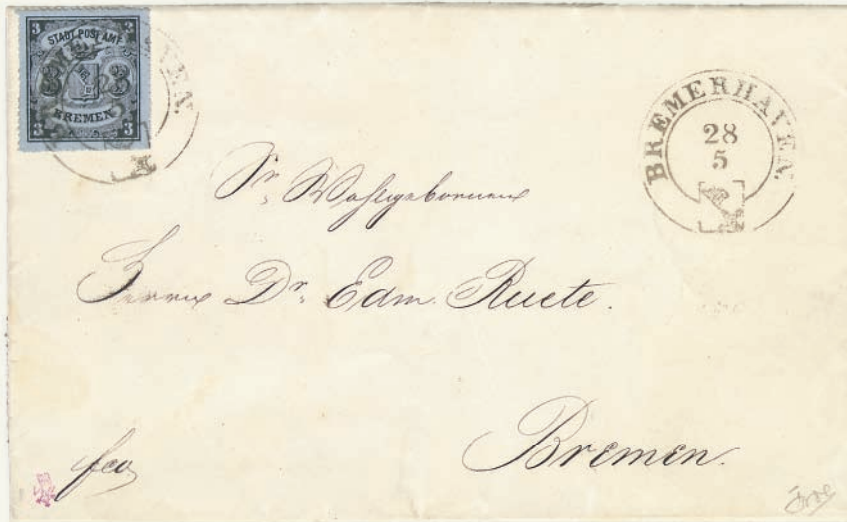 3 3
STADT POST AMT
3 3
BREMEN
3 3
BREMERHAVEN.
28
5
Sr. Wohlgeboren
Herrn Dr. Edm. Ruete.
Bremen.
fco